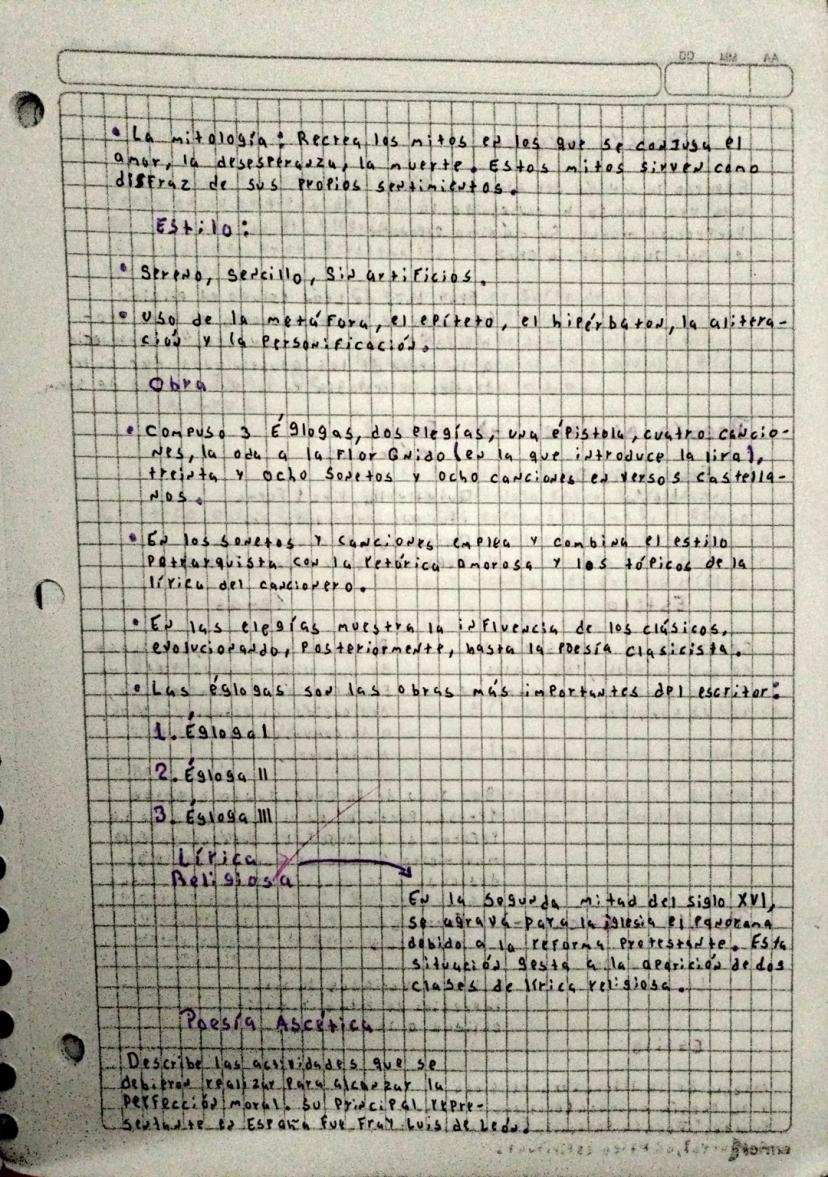 AA MM DD
• La mitología: Recrea los mitos en los que se conjuga el
amor, la desesperanza, la muerte. Estos mitos sirven como
disfraz de sus propios sentimientos.
Estilo:
• Sereno, sencillo, sin artificios.
• Uso de la metáfora, el epíteto, el hipérbaton, la alitera-
ción y la personificación.
Obra
• Compuso 3 Églogas, dos elegías, una épistola, cuatro cancio-
nes, la oda a la Flor Gnido (en la que introduce la lira),
treinta y ocho sonetos y ocho canciones en versos castella-
nos.
• En los sonetos y canciones emplea y combina el estilo
petrarquista con la retórica amorosa y los tópicos de la
lírica del cancionero.
• En las elegías muestra la influencia de los clásicos,
evolucionando, posteriormente, hasta la poesía clasicista.
• Las églogas son las obras más importantes del escritor:
1. Égloga I
2. Égloga II
3. Égloga III
Lírica
Religiosa
En la segunda mitad del siglo XVI,
se agrava para la iglesia el panorama
debido a la reforma protestante. Esta
situación gesta a la aparición de dos
clases de lírica religiosa.
Poesía Ascética
Describe las actividades que se
debieron realizar para alcanzar la
perfección moral. su principal repre-
sentante en España fue Fray Luis de León.